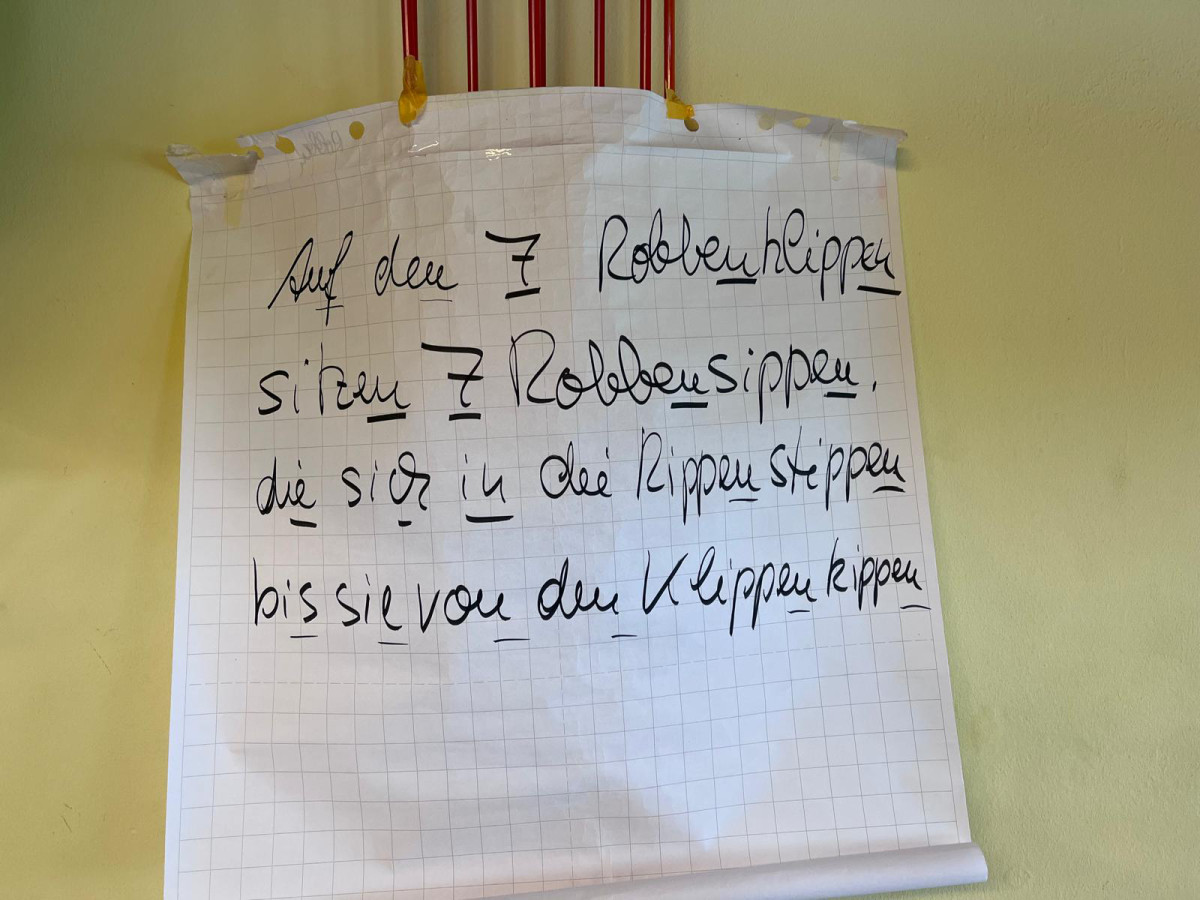 Auf den 7 Robbenklippen
sitzen 7 Robbensippen,
die sich in die Rippen stippen
bis sie von den Klippen kippen